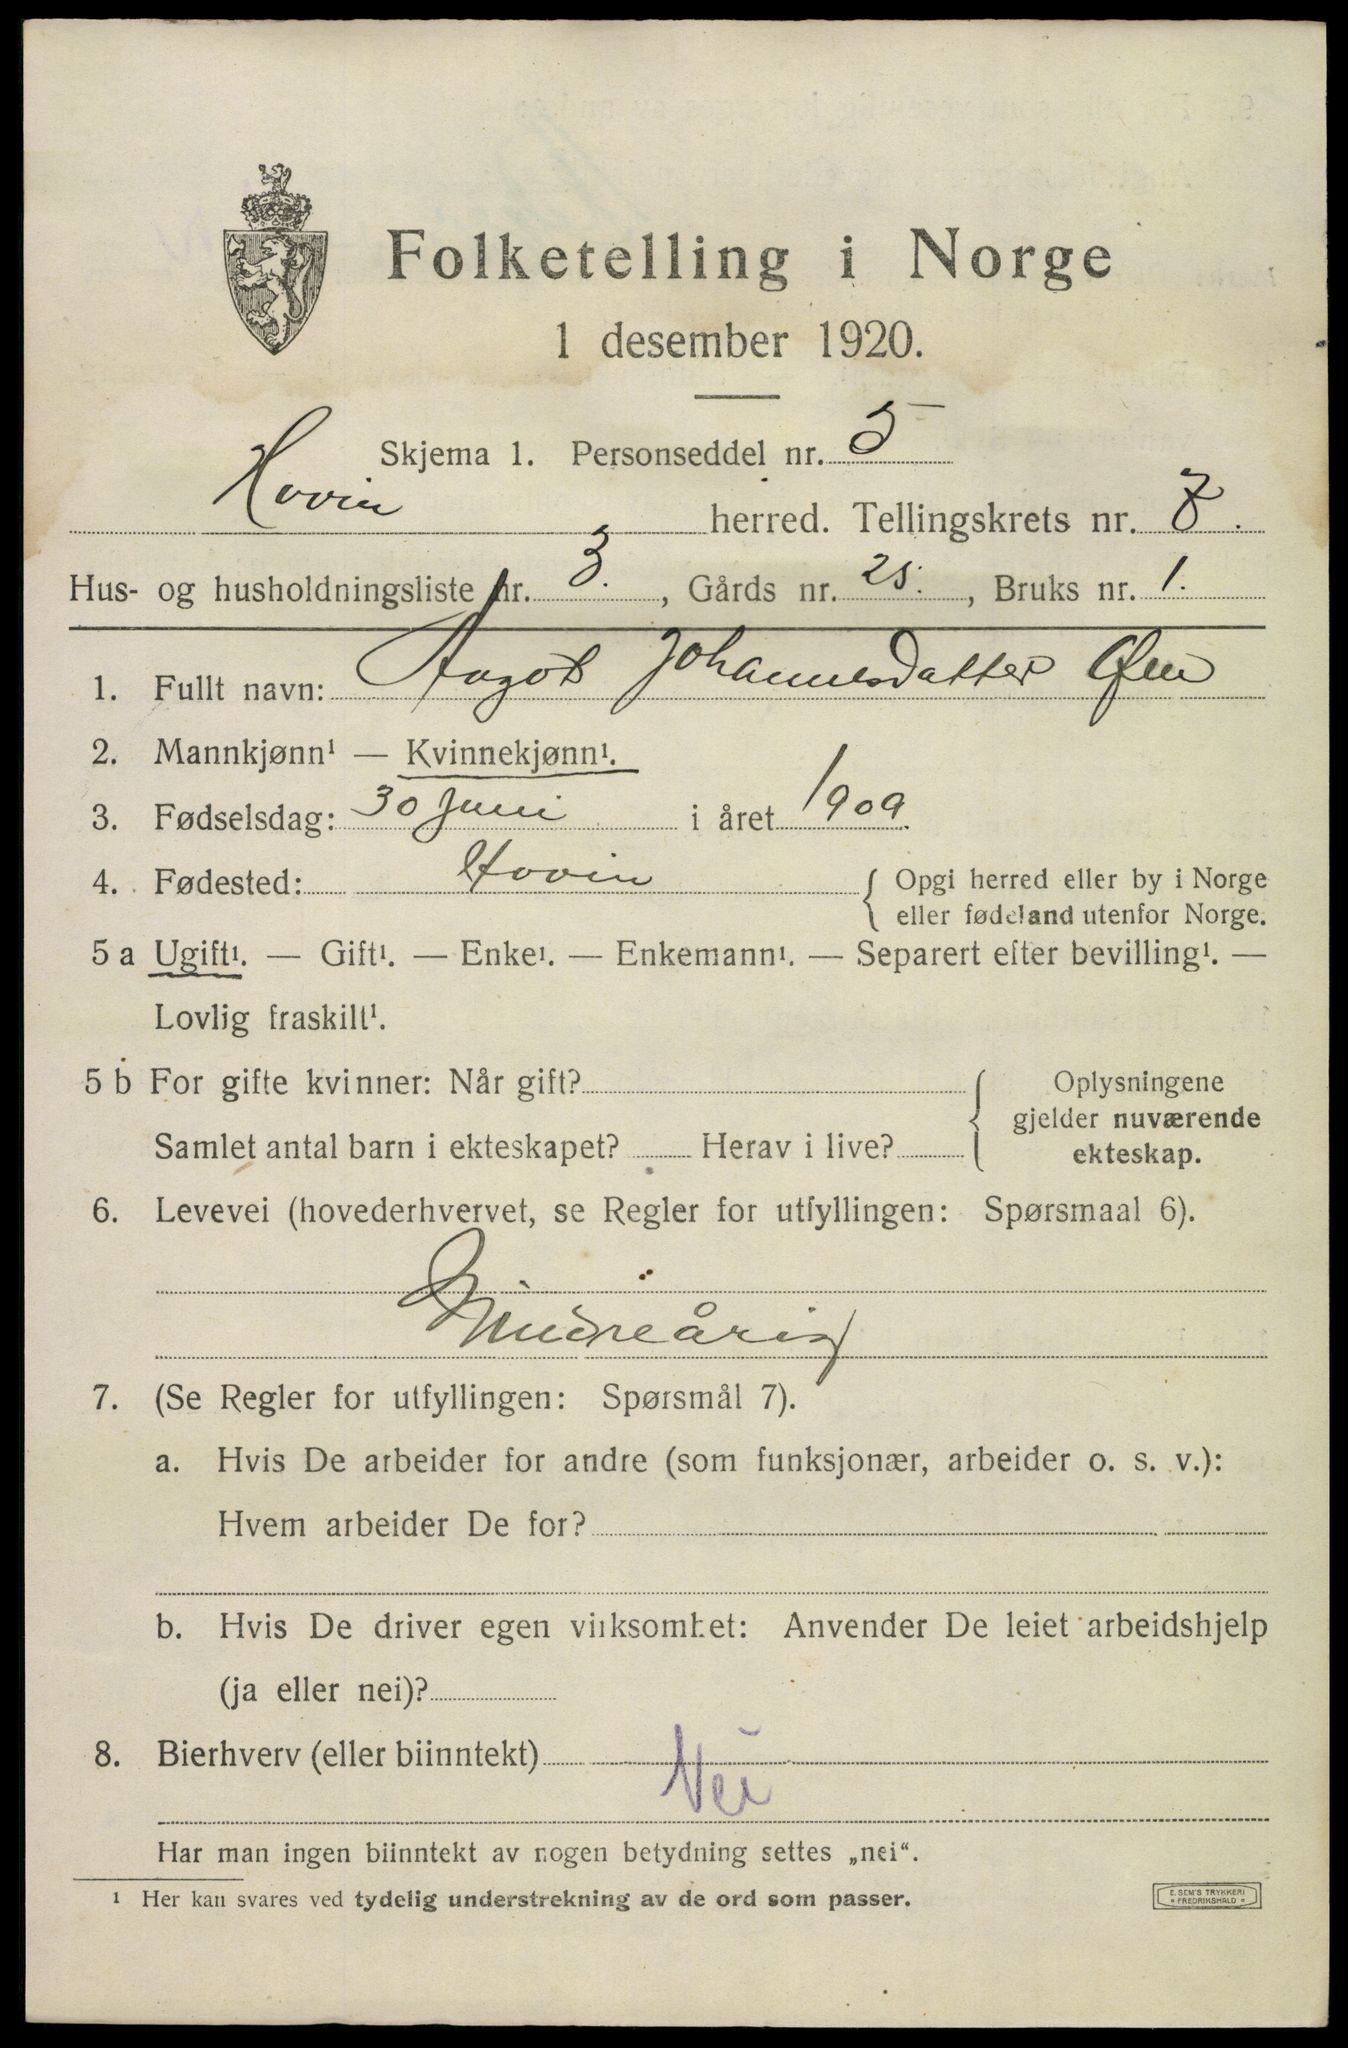 Folketelling i Norge
1 desember 1920.
Skjema 1. Personseddel nr. 5
Hovin herred. Tellingskrets nr. 7.
Hus- og husholdningsliste nr. 3. , Gårds nr. 25. , Bruks nr. 1.
1. Fullt navn: Aagot Johannesdatter Øen
2. Mannkjønn¹ — Kvinnekjønn¹.
3. Fødselsdag: 30 juni i året 1909.
4. Fødested: Hovin { Opgi herred eller by i Norge
eller fødeland utenfor Norge.
5 a Ugift¹. — Gift¹. — Enke¹. — Enkemann¹. — Separert efter bevilling¹. —
Lovlig fraskilt¹.
5 b For gifte kvinner: Når gift? { Oplysningene
gjelder nuværende
Samlet antal barn i ekteskapet? Herav i live? ekteskap.
6. Levevei (hovederhvervet, se Regler for utfyllingen: Spørsmaal 6).
Mindreårig
7. (Se Regler for utfyllingen: Spørsmål 7).
a. Hvis De arbeider for andre (som funksjonær, arbeider o. s. v.):
Hvem arbeider De for?
b. Hvis De driver egen virksomhet: Anvender De leiet arbeidshjelp
(ja eller nei)?
8. Bierhverv (eller biinntekt) Nei
Har man ingen biinntekt av nogen betydning settes „nei“.
¹ Her kan svares ved tydelig understrekning av de ord som passer.
E. SEM'S TRYKKERI
FREDRIKSHALD